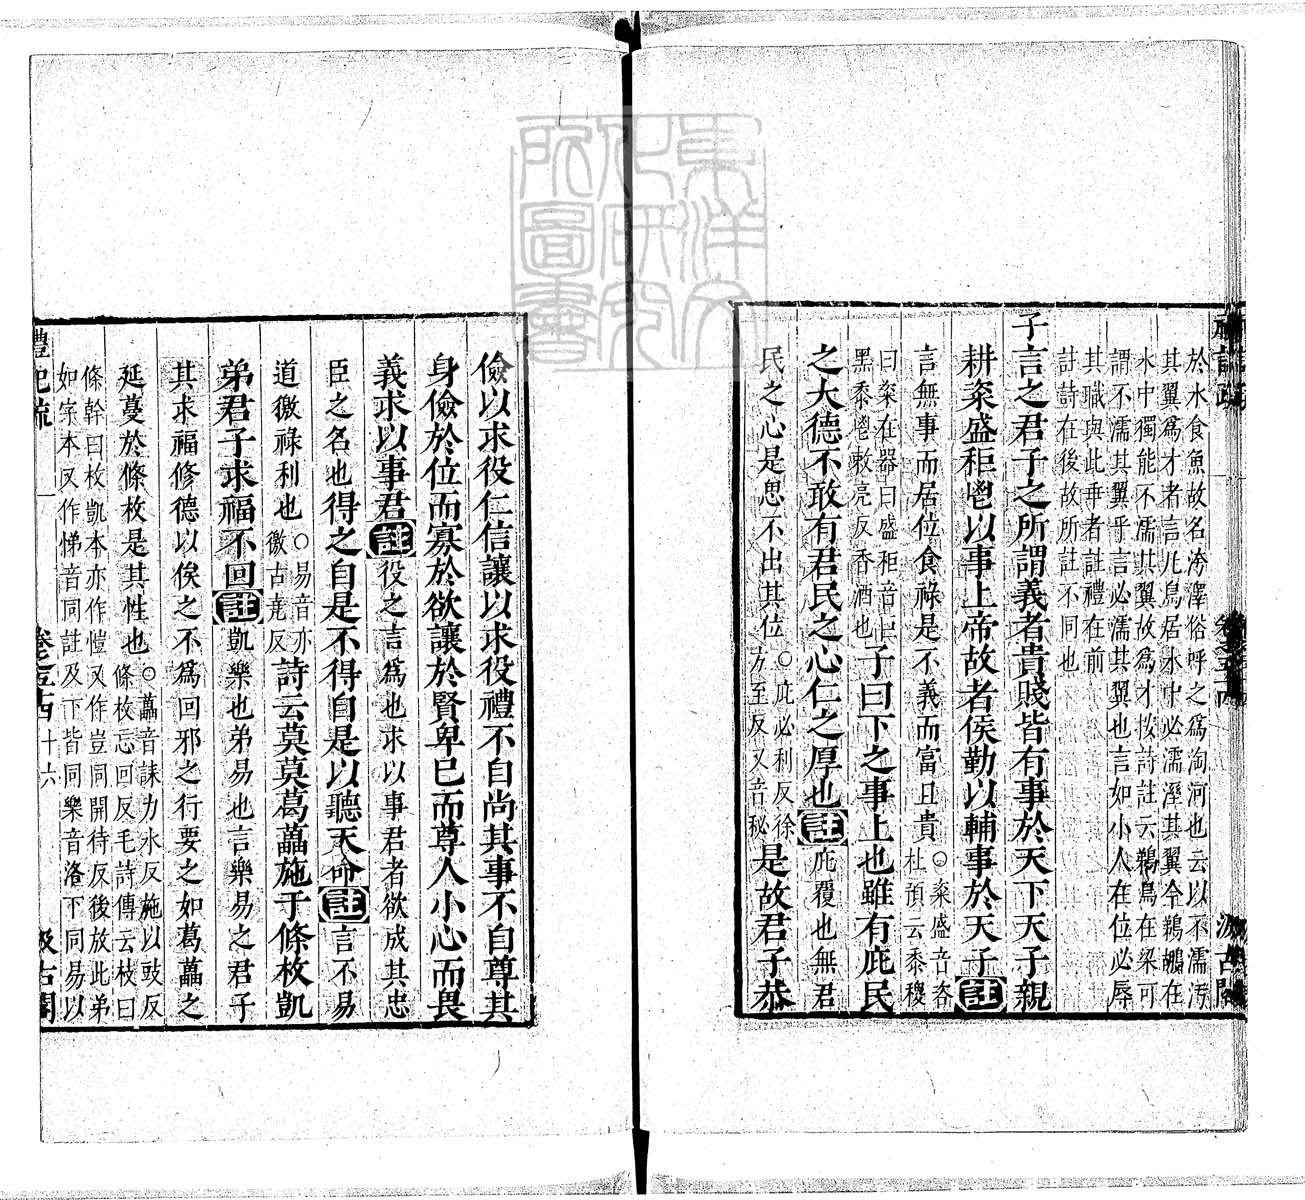 禮記疏 卷五十四 汲古閣
於水食魚故名洿澤俗呼之爲淘河也云以不濡污
其翼爲才者言凡鳥居水中必濡溼其翼今鵜鶘在
水中獨能不濡其翼故爲才按詩註云鵜鳥在梁可
謂不濡其翼乎言必濡其翼也言如小人在位必辱
其職與此乖者註禮在前
註詩在後故所註不同也
子言之君子之所謂義者貴賤皆有事於天下天子親
耕粢盛秬鬯以事上帝故者侯勤以輔事於天子註
言無事而居位食祿是不義而富且貴○粢盛音咨杜預云黍稷
曰粢在器曰盛秬音巨黑黍鬯敕亮反香酒也子曰下之事上也雖有庇民
之大德不敢有君民之心仁之厚也註庇覆也無君
民之心是思不出其位○庇必利反徐方至反又音秘是故君子恭
儉以求役仁信讓以求役禮不自尚其事不自尊其
身儉於位而寡於欲讓於賢卑已而尊人小心而畏
義求以事君註役之言爲也求以事君者欲成其忠
臣之名也得之自是不得自是以聽天命註言不易
道徼祿利也○易音亦徼古堯反詩云莫莫葛藟施于條枚凱
弟君子求福不回註凱樂也弟易也言樂易之君子
其求福修德以俟之不爲回邪之行要之如葛藟之
延蔓於條枚是其性也○藟音誄力水反施以豉反條枚忘回反毛詩傳云枝曰
條幹曰枚凱本亦作愷又作豈同開待反後放此弟
如字本又作悌音同註及下皆同樂音洛下同易以
禮記疏 卷五十四 十六 汲古閣
東洋文化研究所圖書